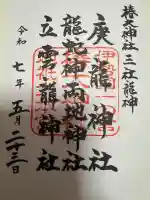 椿大神社 三社龍神
庚龍神社
龍蛇神両地神社
立雲龍神社
令和七年五月二十三日